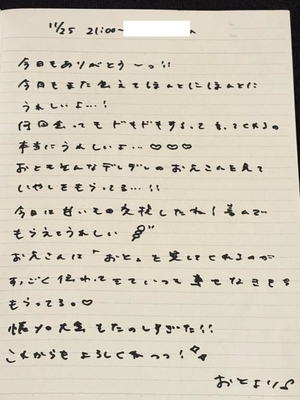 11/25 21:00~
今日もありがとうーっ!!
今日もまた会えてほんとにほんとに
うれしいよ…!
何回会ってもドキドキするって言ってくれるの
本当にうれしいよ…♡♡♡
おともそんなデレデレのおえさんを見て
いやしをもらってる…!!
今日は甘いもの交換したね!喜んで
もらえてうれしい
おえさんに「おと」を愛してくれるのが
すっごく伝わってきていつも幸せなきもち
もらってる。♡
もたのしすぎた!!
これからもよろしくねっっ!
おとより♪